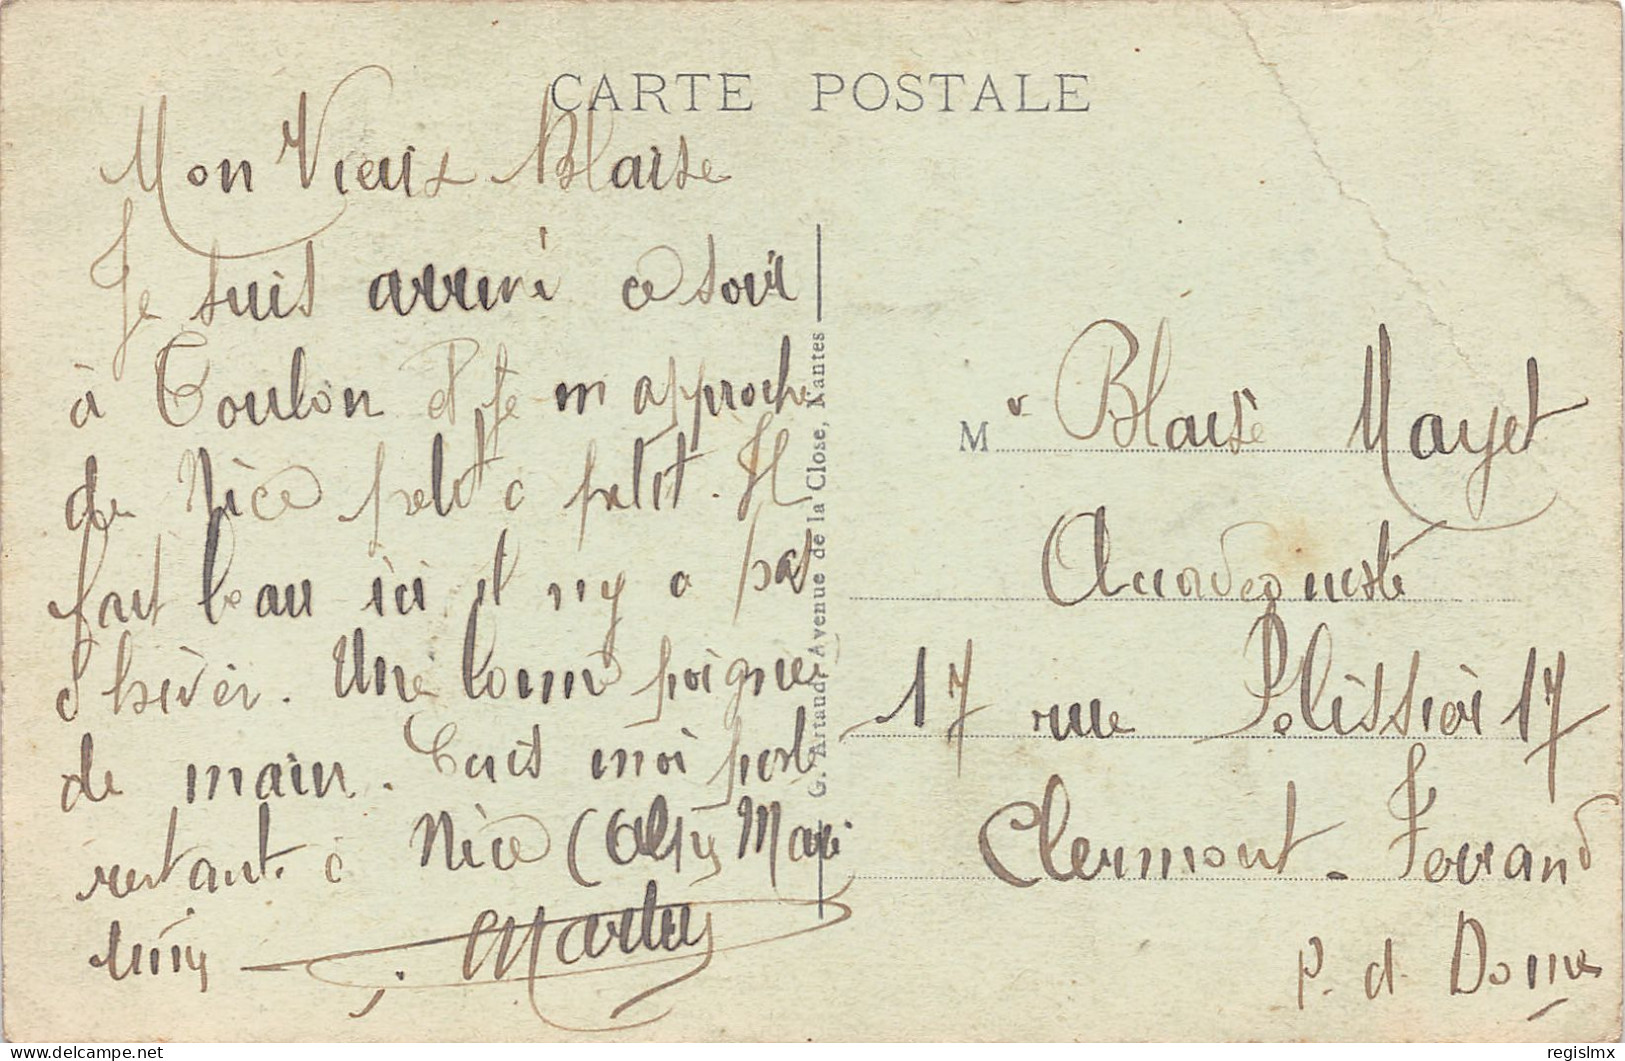 CARTE POSTALE
Mon Vieux Blaise
Je suis arrivé ce soir
à Toulon et je m approche
de Nice petit à petit. Il
fait beau ici il n'y a pas
d'hiver. Une bonne poignée
de main. Ecris moi poste
restante à Nice (Alpes Mari
times
G. Artaud, Avenue de la Close, Nantes
Mr Blaise Mayet
Accordéoniste
17 rue Pelissier 17
Clermont-Ferrand
P. d. Dome
regislmx
delcampe.net